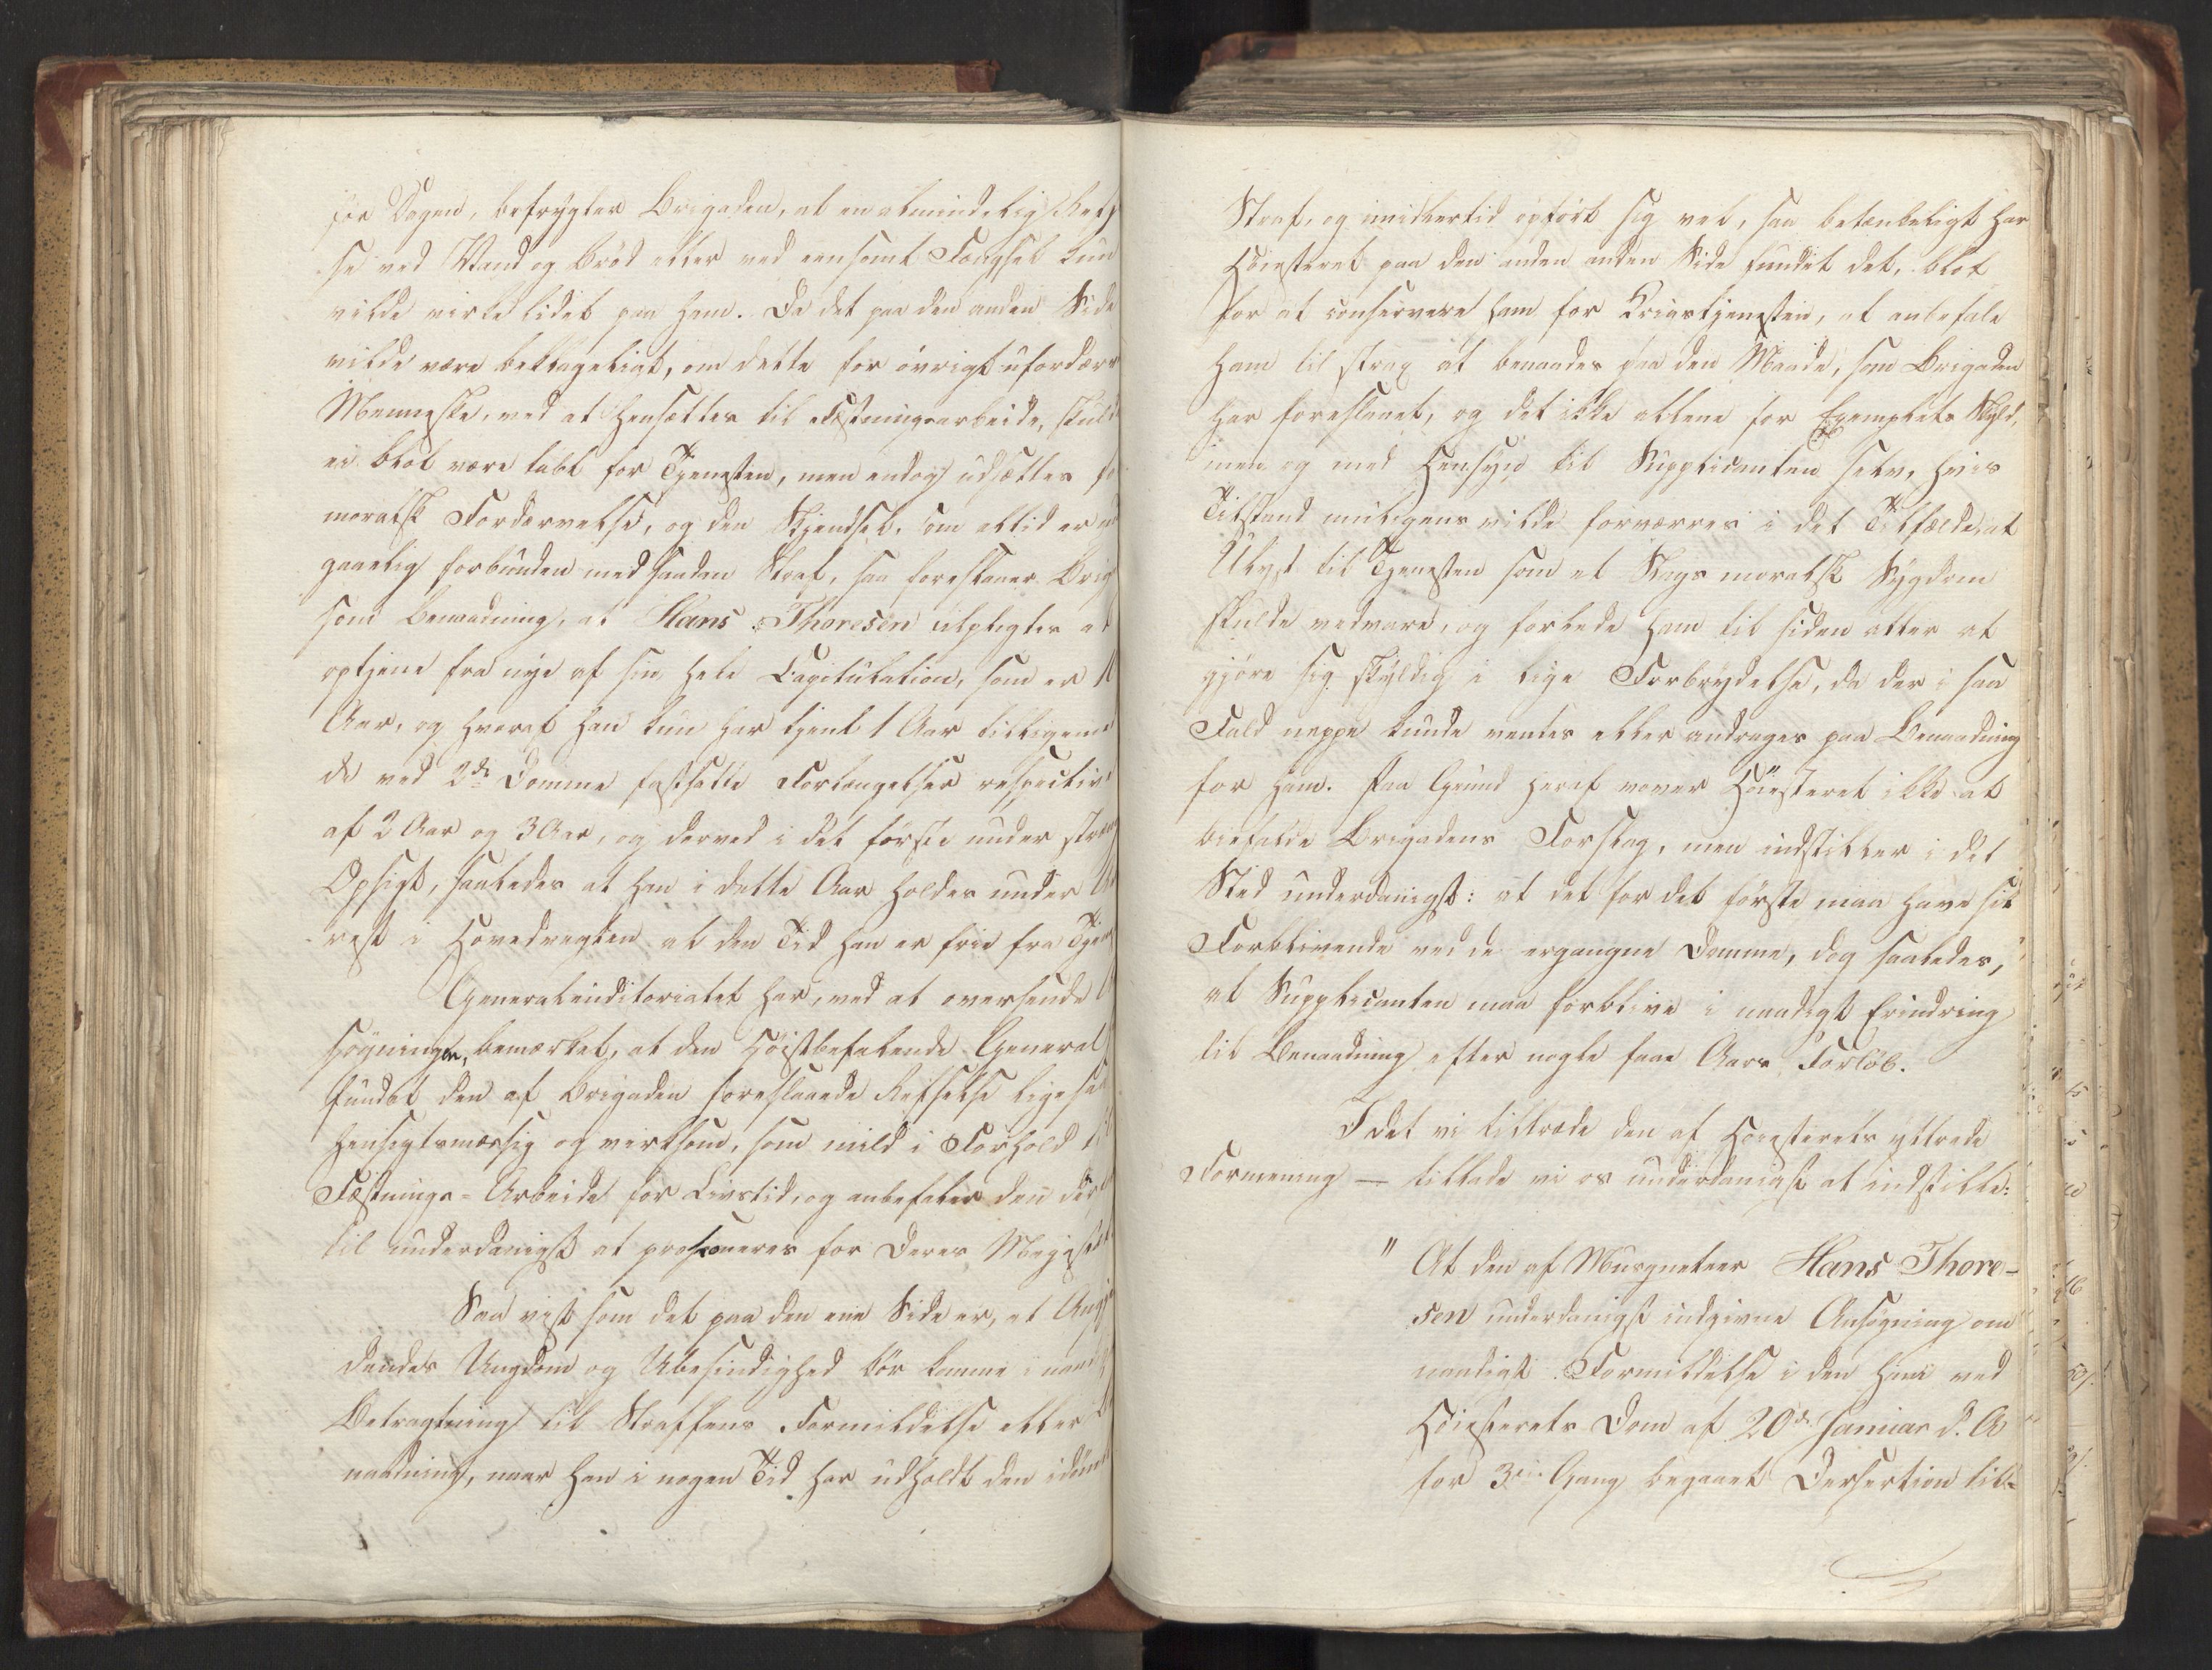 før Dagen, befrygter Brigaden, at en almindelig Refs
se ved Vand og Brød eller ved eensomt Fængsel kun
vilde virke lidet paa ham. Da det paa den anden Side
vilde være beklageligt, om dette for øvrigt ufordærv
Menneske, ved at hensættes til Fæstningsarbeide, skuld
ei blot være tabt for Tjenesten, men endog udsættes fo
moralsk Fordærvelse, og den Skjendsel, som altid er u
gaaelig forbunden med saadan Straf, saa foreslaaer Brig
som Benaadning, at Hans Thoresen tilpligtes at
optjene fra nye af sin hele Capitulation, som er
Aar, og hvoraf han kun har tjent 1 Aar tilligem
de ved 2de Domme fastsatte Forlængelser respective
af 2 Aar og 3 Aar, og derved i det første under stræng
Opsigt, saaledes at han i dette Aar holdes under Ar
rest i Hovedvagten al den Tid han er frie fra Tjen
Generalauditoriatet har, ved at oversende
søgningen, bemærket, at den Høistbefalende General
fundet den af Brigaden foreslaaede Refselse ligesaa
hensigtsmæssig og virksom, som mild i Forhold til
Fæstnings-Arbeide for Livstid, og anbefaler den der
til underdanigst at proponeres for Deres Majestæt
Saa vist som det paa den ene Side er, at Angj
dendes Ungdom og Ubesindighed bør komme i naad
Betragtning til Straffens Formildelse eller Be
naadning, naar han i nogen Tid har udholdt den idømt
Straf, og imidlertid opført sig vel, saa betænkeligt har
Høiesteret paa den anden anden Side fundet det, blot
for at conservere ham for Krigstjenesten, at anbefale
ham til strax at benaades paa den Maade, som Brigaden
har foreslaaet, og det ikke allene for Exemplets Skyld,
men og med Hensyn til Supplicanten selv, hvis
Tilstand muligens vilde forværres i det Tilfælde, at
Ulyst til Tjenesten som et Slags moralsk Sygdom
skulde vedvare, og forlede ham til siden atter at
gjøre sig skyldig i lige Forbrydelse, da der i saa
Fald neppe kunde ventes eller andrages paa Benaadning
for ham. Paa Grund heraf vover Høiesteret ikke at
biefalde Brigadens Forslag, men indstiller i det
Sted underdanigst: at det for det første maa have sit
Forblivende ved de ergangne Domme, dog saaledes,
at Supplicanten maa forblive i naadigst Erindring
til Benaadning efter nogle faae Aars Forløb.
Idet vi tiltræde den af Høiesterets yttrede
Formening — tillade vi os underdanigst at indstille:
" At den af Musqueteer Hans Thore-
sen underdanigst indgivne Ansøgning om
naadigst Formildelse i den ham ved
Høiesterets Dom af 20de Januar d. A
for 3die Gang begaaet Desertion til-